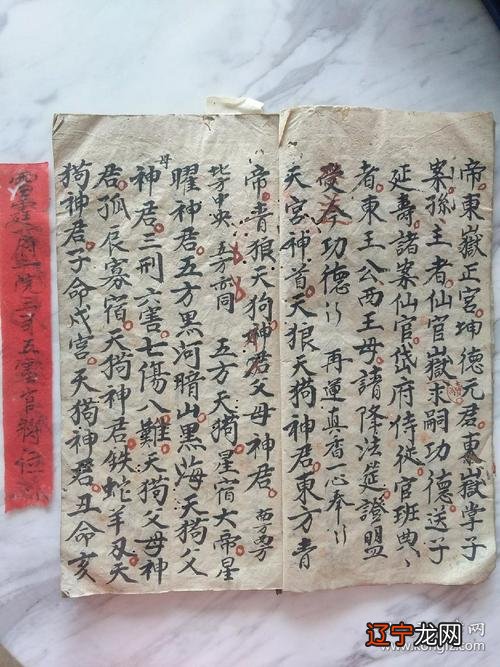 帝。東嶽正宮坤德元君。東嶽掌子
案孫主者仙官嶽求嗣功德送子
延壽諸案仙官岱府侍從官班典、
者東王公西王母請降法筵證盟
受今功德 再運真香一心奉
天宮神首。天狼天狗神君東方青
帝青狼天狗神君父母神君。南方西方
北方中央 五方亦同 五方天狗星宿大帝星
曜神君五方黑河暗山黑海天狗父
母神君三刑六害七傷八難天狗父母神
君。孤辰寡宿天狗神君鉄蛇羊刃天
狗神君子命戌宮天狗神君丑命亥
院三司五雲官將位
辽宁龙网
www.kongfz.com